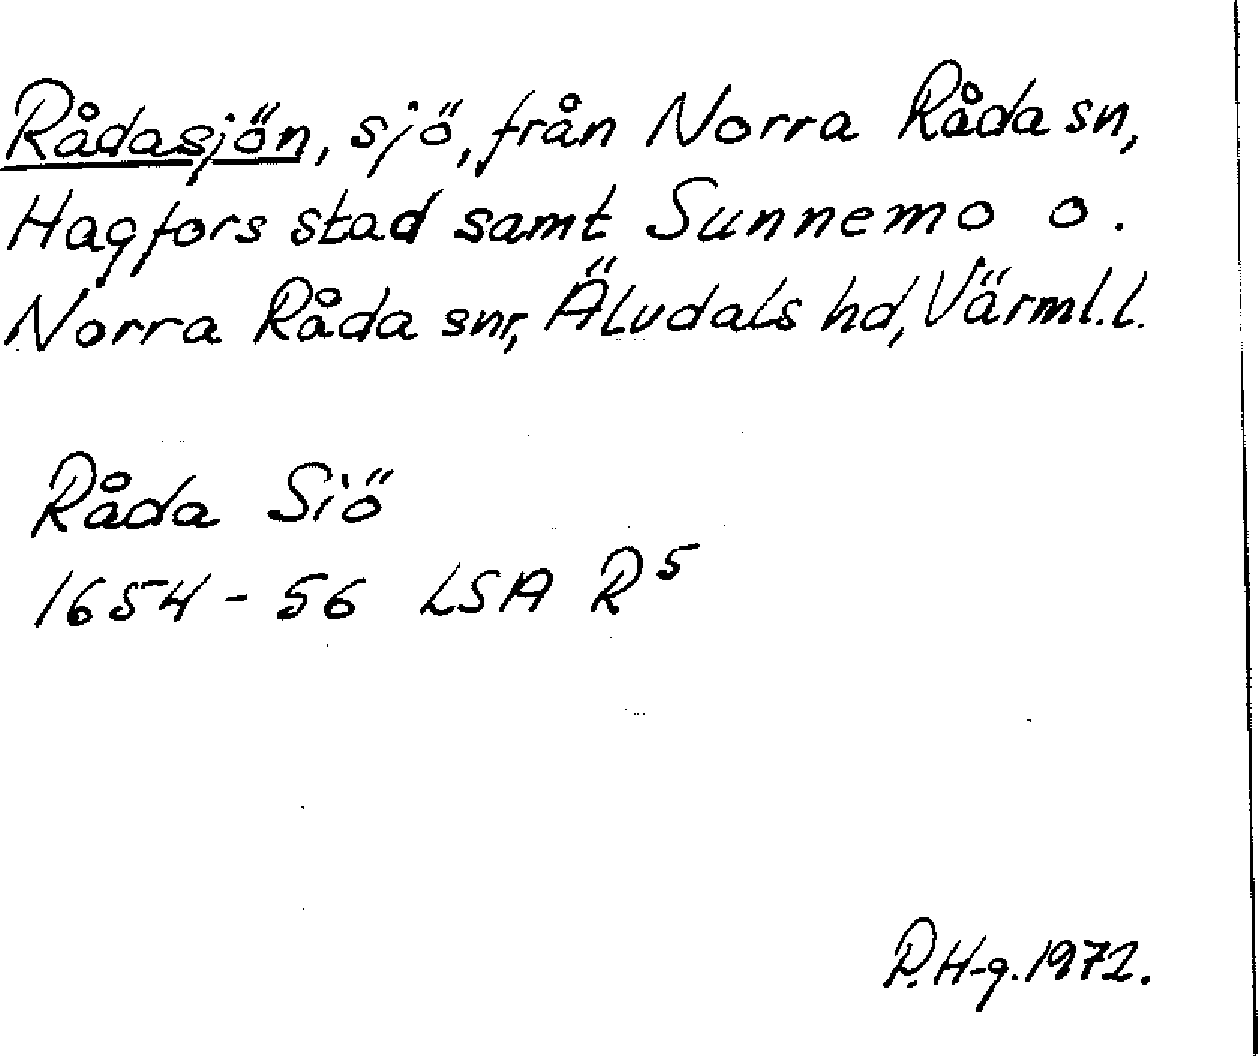 Rådasjön, sjö, från Norra Råda sn,
Hagfors stad samt Sunnemo o.
Norra Råda snr, Älvdals hd, Värml. l.
Råda Siö
1654-56 LSA R5
P. H-g. 1972.